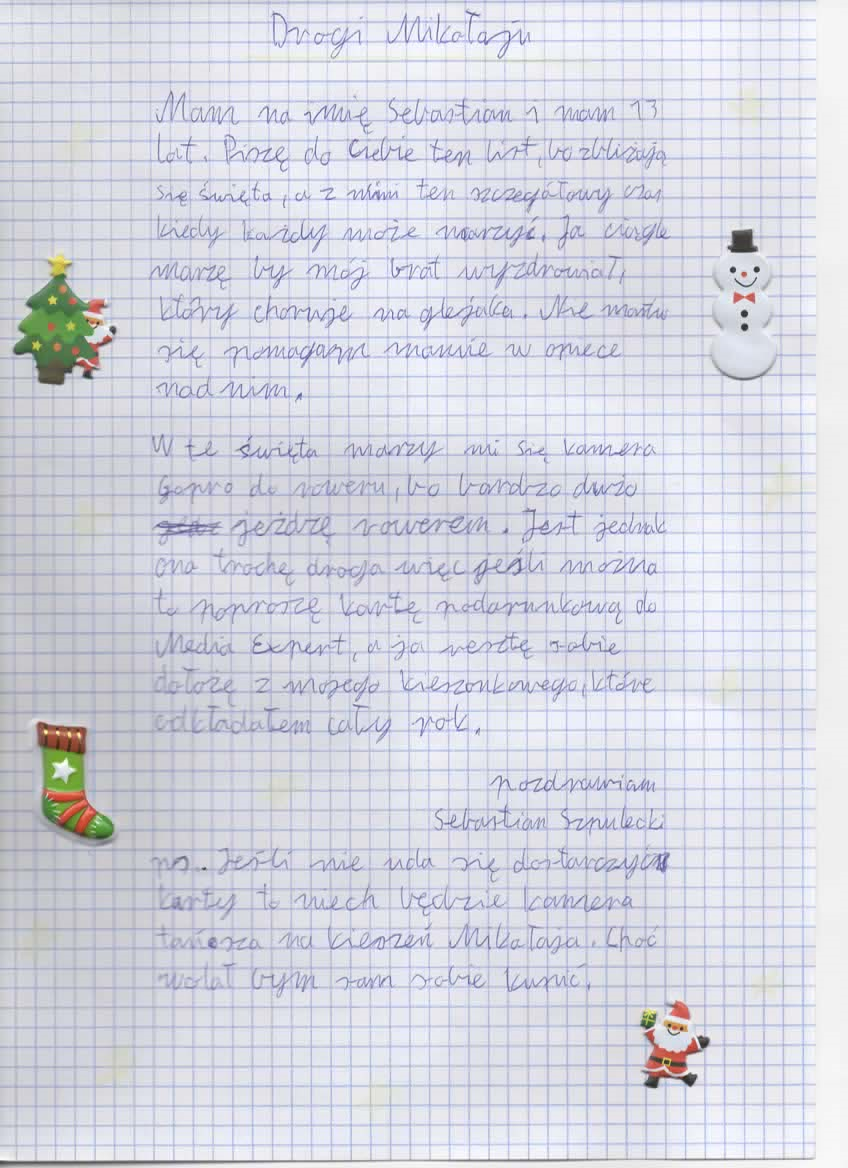 Drogi Mikołaju
Mam na imię Sebastian i mam 13
lat. Piszę do Ciebie ten list, bo zbliżają
się święta, a z nimi ten szczegółowy czas
kiedy każdy może marzyć. Ja ciągle
marzę by mój brat wyzdrowiał,
który choruje na glejaka. Nie martw
się pomagam mamie w opiece
nad nim.
W te święta marzy mi się kamera
Gopro do roweru, bo bardzo dużo
jeżdżę rowerem. Jest jednak
ona trochę droga więc jeśli można
to poproszę kartę podarunkową do
Media Expert, a ja resztę sobie
dołożę z mojego kieszonkowego, które
odkładałem cały rok.
pozdrawiam
Sebastian Szpulecki
ps.. Jeśli nie uda się dostarczyć
karty to niech będzie kamera
tańsza na kieszeń Mikołaja. Choć
wolał bym sam sobie kupić.